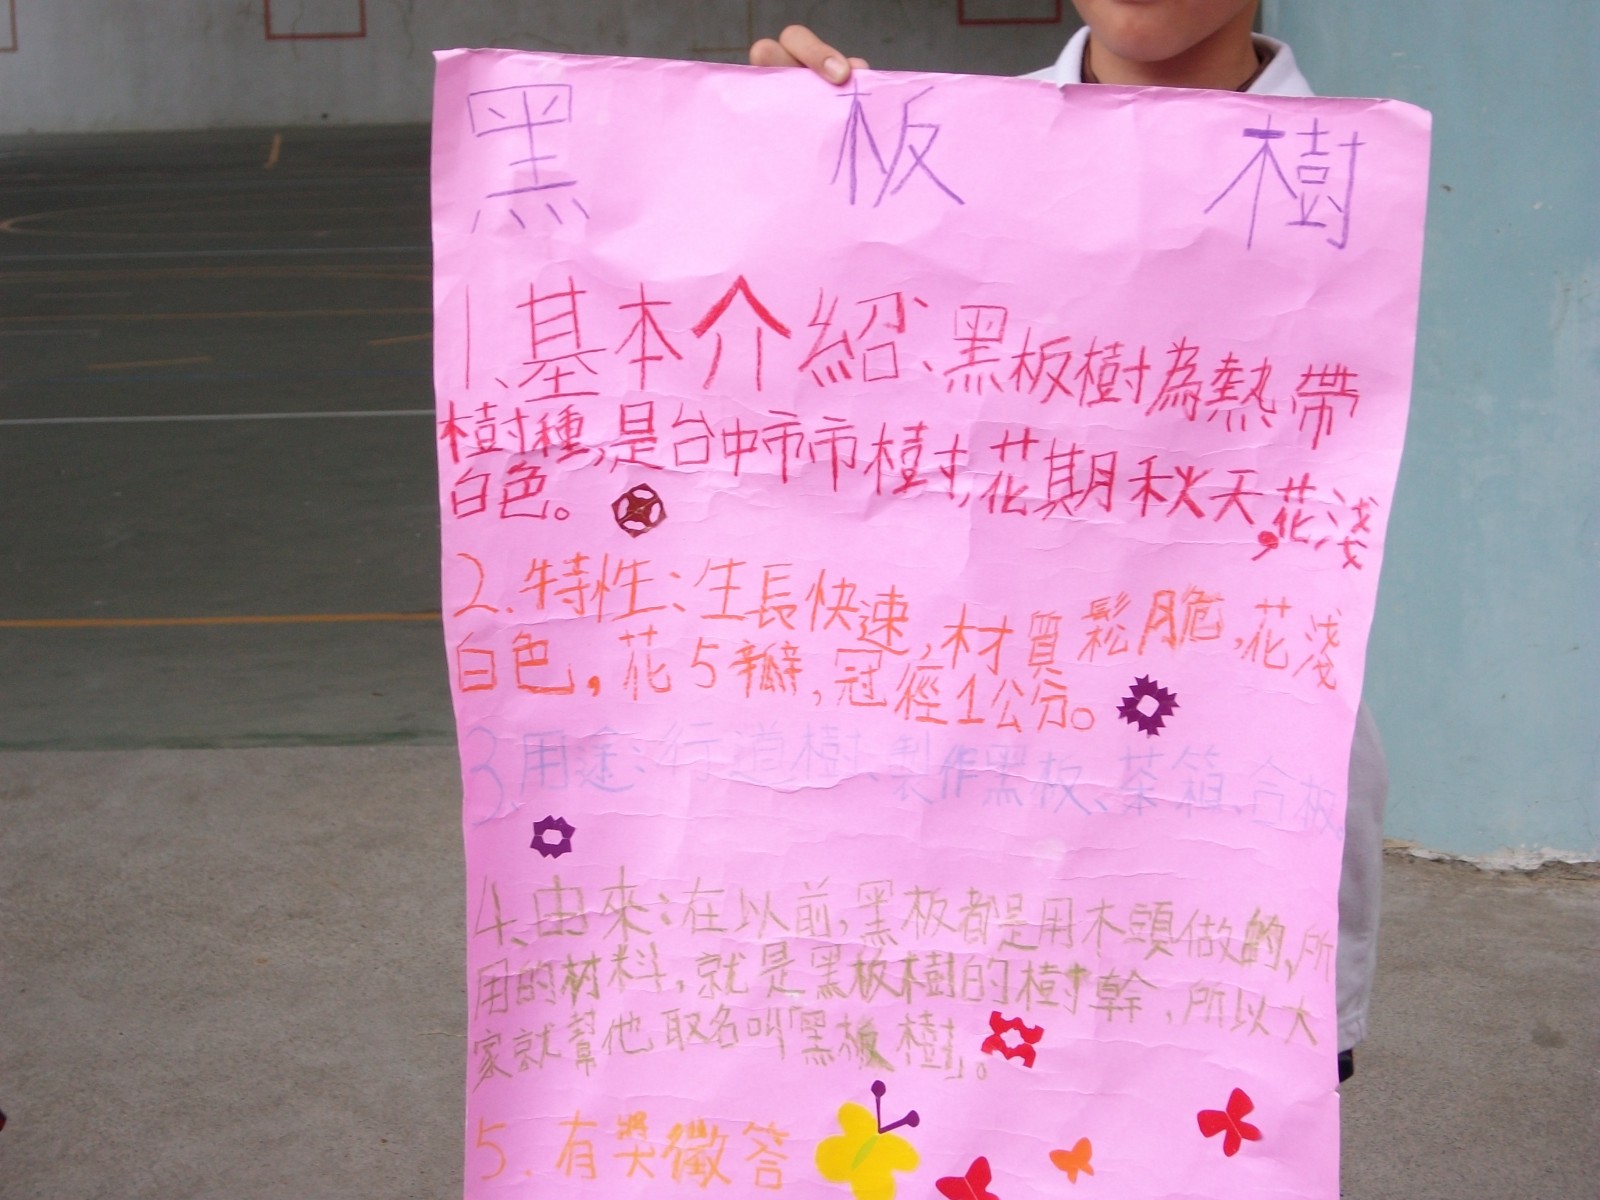 黑板樹
1、基本介紹、黑板樹為熱帶
樹種,是台中市市樹,花期秋天,花淺
白色。
2.特性:生長快速,材質鬆脆,花淺
白色,花5瓣,冠徑1公分。
3.用途:行道樹、製作黑板、茶箱、合板。
4、由來:在以前,黑板都是用木頭做的,所
用的材料,就是黑板樹的樹幹,所以大
家就幫他取名叫「黑板樹」。
5.有獎徵答